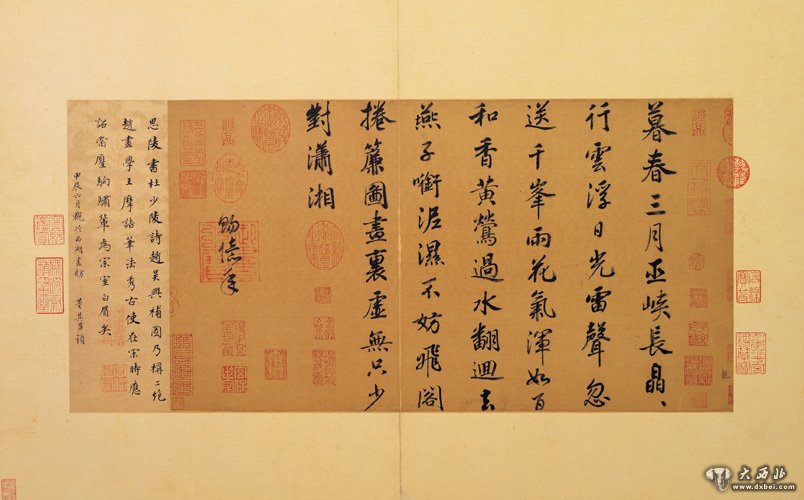 暮春三月巫峽長晶〻
行雲浮日光雷聲忽
送千峯雨花氣渾如百
和香黃鶯過水翻迴去
燕子啣泥濕不妨飛閣
捲簾圖畫裏虛無只少
對瀟湘
賜億年
思陵書杜少陵詩趙吳興補圖乃稱二絕
趙畫學王摩詰筆法考古使在宋時應
詔當壓駒驌輩為宗室白眉矣
甲辰六月觀於西湖畫舫 董其昌題
大西北
www.dxbei.com